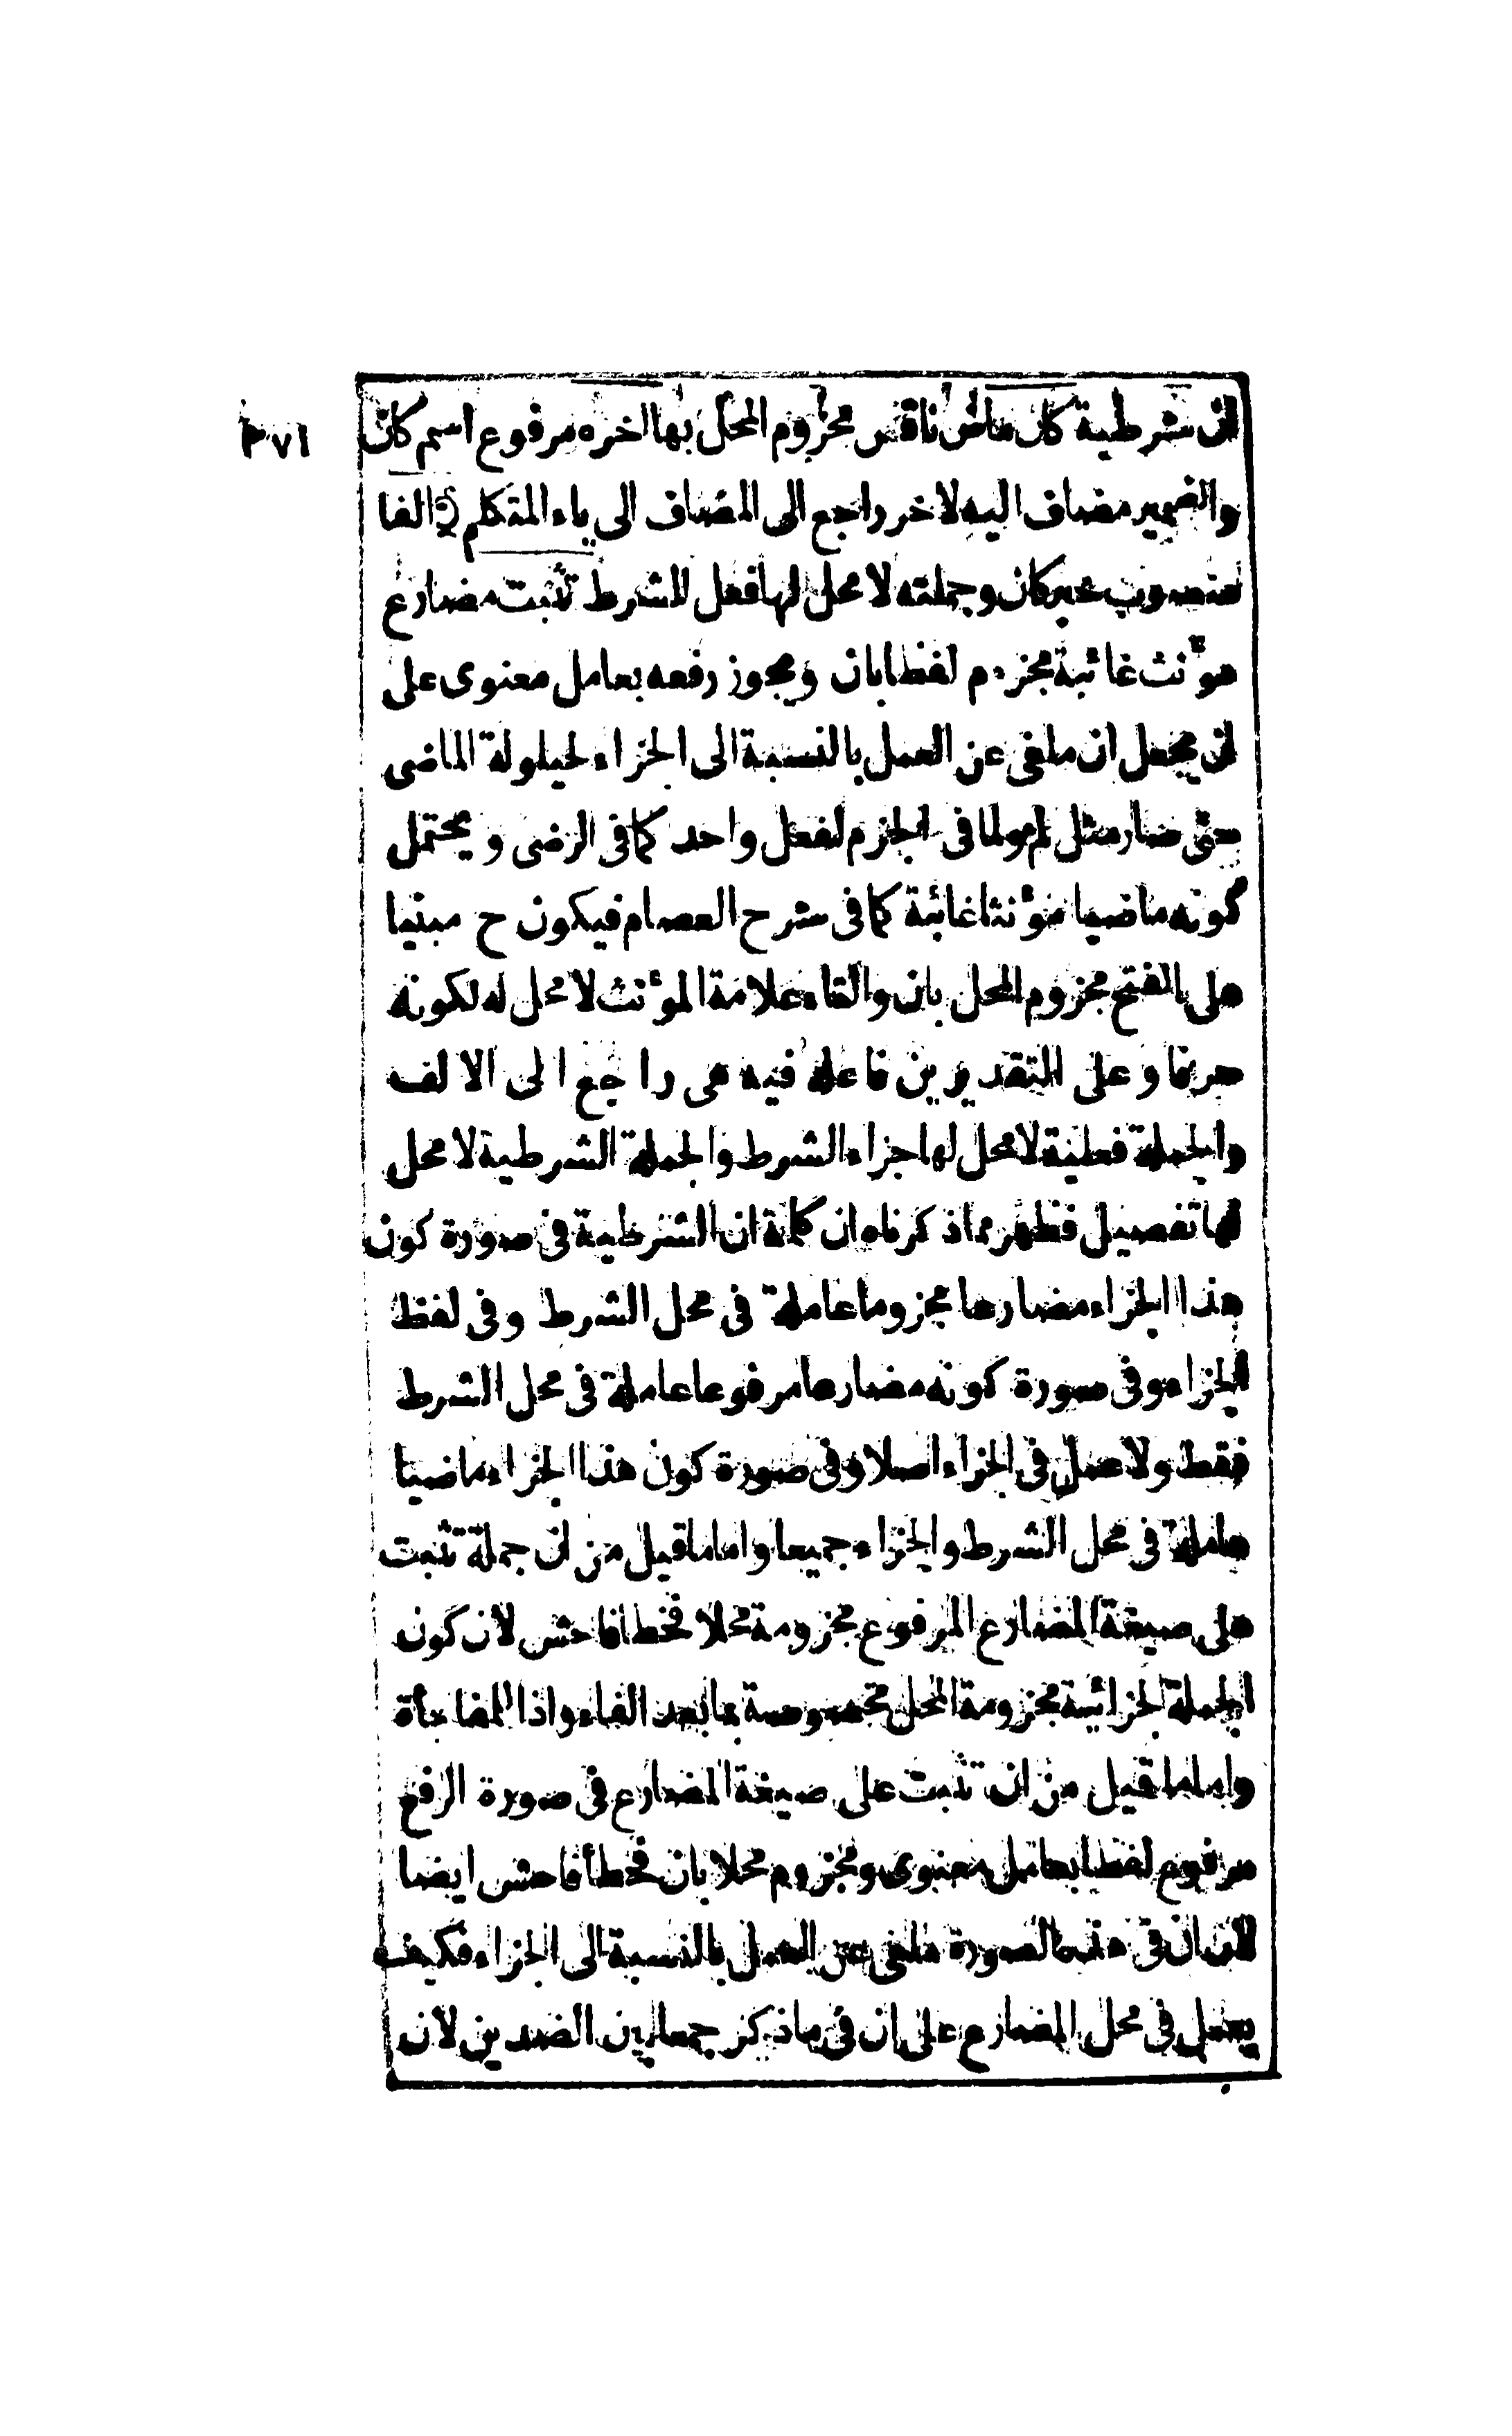 ان شرطية كان ماض ناقص مجزوم المحل بها اخره مرفوع اسم كان
٣٧١
والضمير مضاف اليه لاخر راجع الى المضاف الى ياء المتكلم الفا
منصوب خبر كان وجملته لا محل لها فعل الشرط تثبت مضارع
مؤنث غائبة مجزوم لفظا بان ويجوز رفعه بعامل معنوى على
ان يجعل ان ملغى عن العمل بالنسبة الى الجزاء لحيلولة الماضى
حتى صار مثل لم ولما فى الجزم لفعل واحد كما فى الرضى ويحتمل
كونه ماضيا مؤنثا غائبة كما فى شرح العصام فيكون ح مبنيا
على الفتح مجزوم المحل بان والتاء علامة المؤنث لا محل له لكونه
حرفا وعلى التقديرين فاعله فيه هى راجع الى الالف
والجملة فعلية لا محل لها جزاء الشرط والجملة الشرطية لا محل
لها تفصيل فظهر مما ذكرناه ان كلمة ان الشرطية فى صورة كون
هذا الجزاء مضارعا مجزوما عاملة فى محل الشرط وفى لفظ
الجزاء وفى صورة كونه مضارعا مرفوعا عاملة فى محل الشرط
فقط ولا عمل فى الجزاء اصلا وفى صورة كون هذا الجزاء ماضيا
عاملة فى محل الشرط والجزاء جميعا واما ما قيل من ان جملة تثبت
على صيغة المضارع المرفوع مجزومة محلا فخطأ فاحش لان كون
الجملة الجزائية مجزومة المحل مخصوصة بما بعد الفاء واذا المفاجأة
واما ما قيل من ان تثبت على صيغة المضارع فى صورة الرفع
مرفوع لفظا بعامل معنوى ومجزوم محلا بان فخطأ فاحش ايضا
لان ان فى هذه الصورة ملغى عن العمل بالنسبة الى الجزاء فكيف
يعمل فى محل المضارع على ان فى ما ذكر جمعا بين الضدين لان